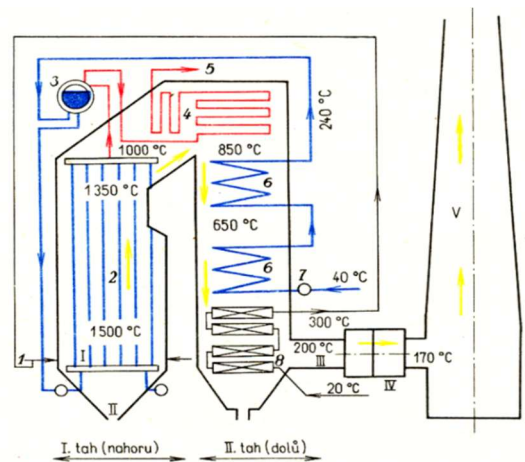 5
3
4
240 °C
1000 °C
850 °C
1350 °C
6
V
650 °C
2
6
7
40 °C
300 °C
1500 °C
1
I
200 °C
8
III
170 °C
20 °C
IV
II
I. tah (nahoru)
II. tah (dolů)